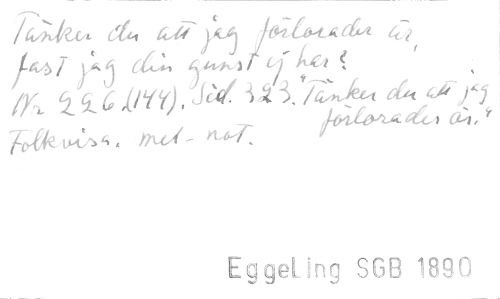 Tänker du att jag förlorader är,
fast jag din gunst ej har?
Nr 226.(144). Sid. 323. "Tänker du att jag
förlorader är."
Folkvisa. mel-not.
EggeLing SGB 1890